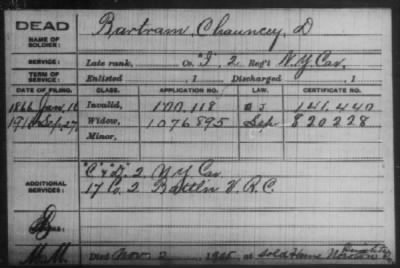 DEAD
NAME OF SOLDIER: Bartram, Chauncey, D
SERVICE: Late rank, Co. "I", 2 Reg't N.Y. Cav.
TERM OF SERVICE: Enlisted , 1 Discharged , 1
DATE OF FILING. CLASS. APPLICATION NO. LAW. CERTIFICATE NO.
1866 Jan, 16 Invalid, 100,118 141,440
Sep, 27 Widow, 1076895 Sep 820228
Minor,
ADDITIONAL SERVICES: 2 N Y Cav
17 Co. 2 Battl'n V.R.C.
Died Nov 2 1905, at Sold Home